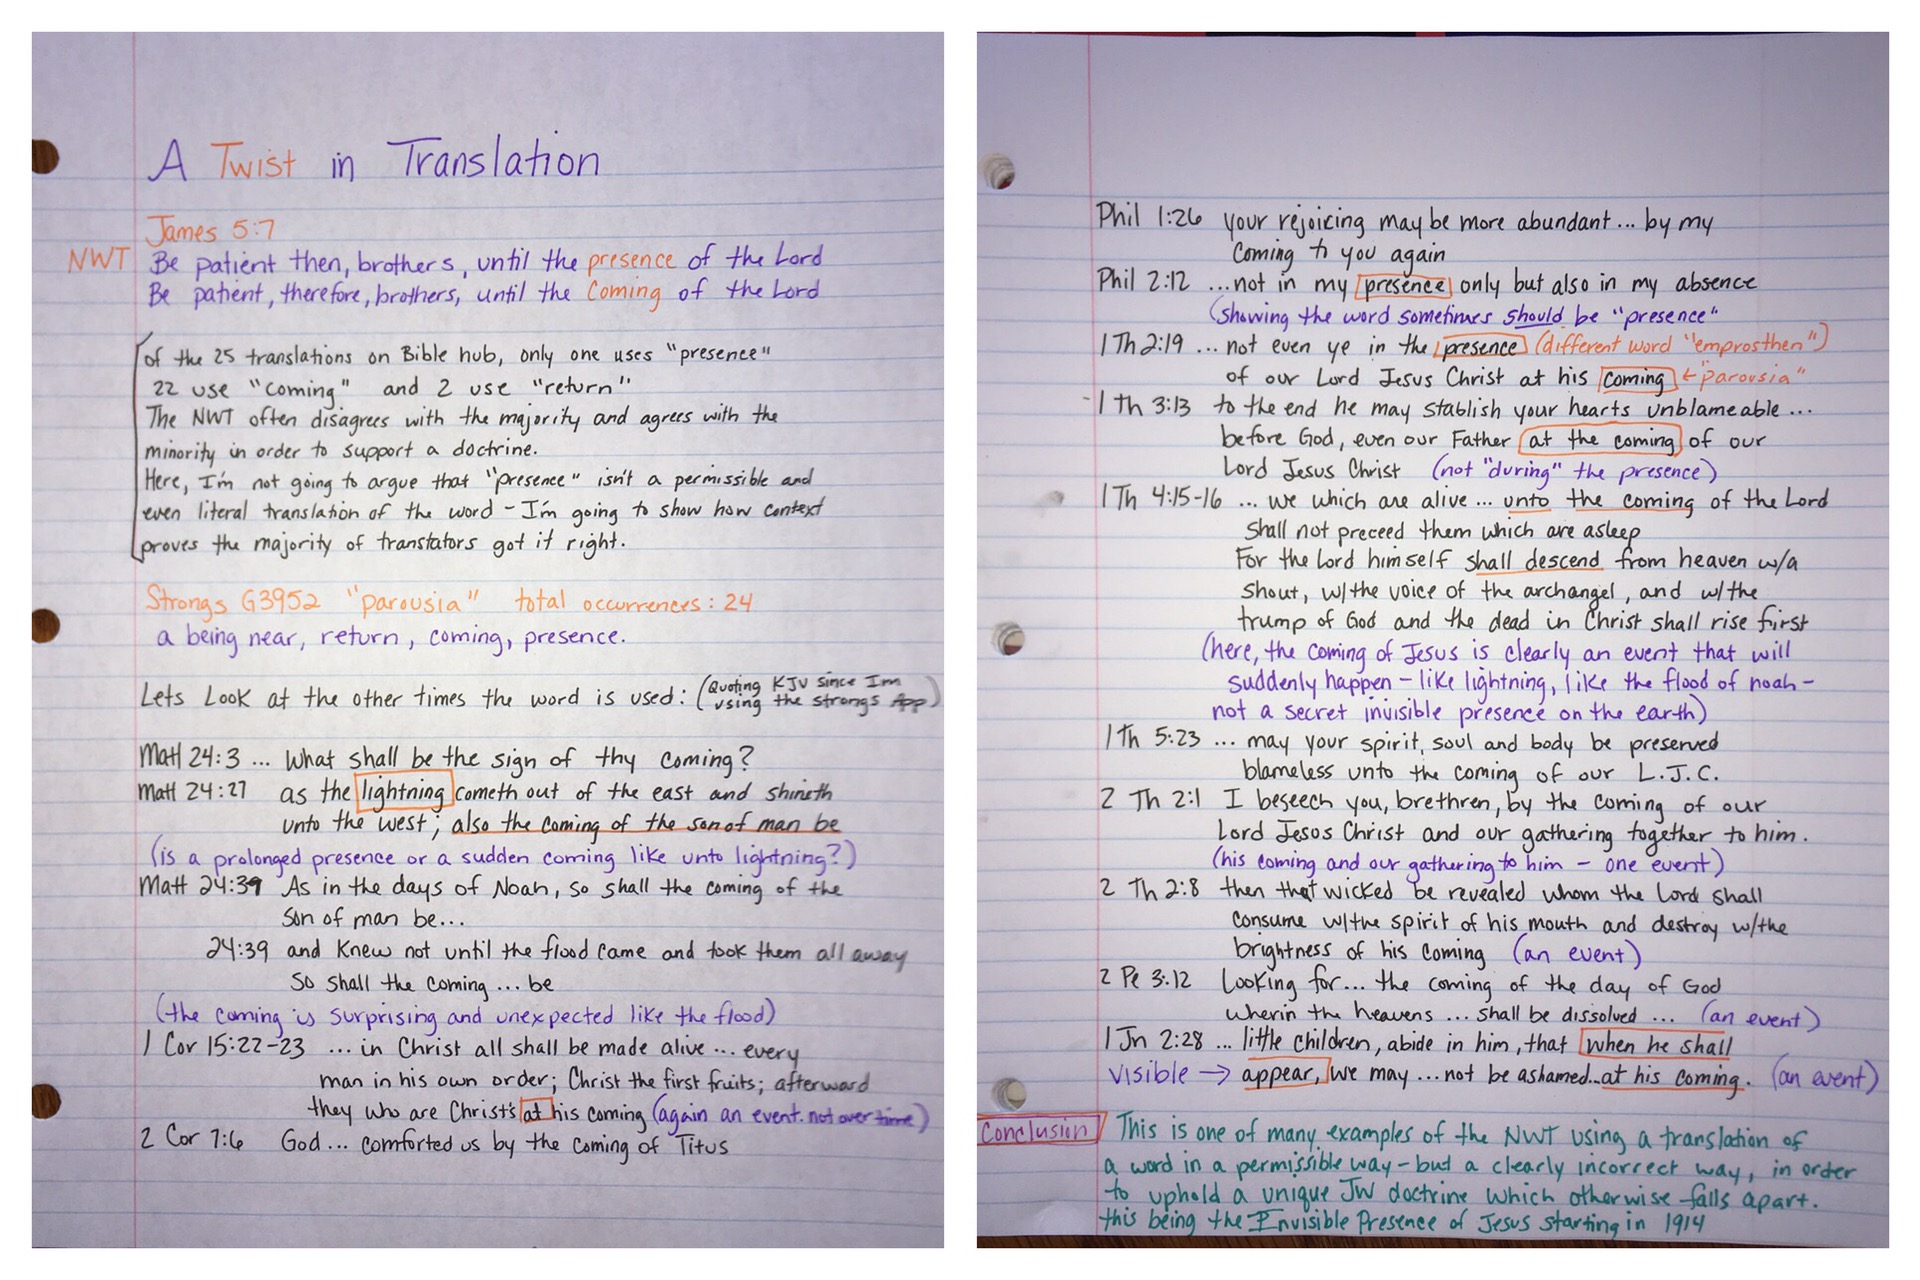 A Twist in Translation
James 5:7
NWT Be patient then, brothers, until the presence of the Lord
Be patient, therefore, brothers, until the Coming of the Lord
Of the 25 translations on Bible hub, only one uses "presence"
22 use "coming" and 2 use "return"
The NWT often disagrees with the majority and agrees with the
minority in order to support a doctrine.
Here, I'm not going to argue that "presence" isn't a permissible and
even literal translation of the word - I'm going to show how context
proves the majority of translators got it right.
Strongs G3952 "parousia" total occurrences: 24
a being near, return, coming, presence.
Lets Look at the other times the word is used: (Quoting KJV since Im
using the strongs App)
Matt 24:3 ... What shall be the sign of thy coming?
Matt 24:27 as the lightning cometh out of the east and shineth
unto the west; also the coming of the son of man be
(is a prolonged presence or a sudden coming like unto lightning?)
Matt 24:39 As in the days of Noah, so shall the coming of the
Son of man be...
24:39 and Knew not until the flood came and took them all away
So shall the coming ... be
(the coming is surprising and unexpected like the flood)
1 Cor 15:22-23 ... in Christ all shall be made alive ... every
man in his own order; Christ the first fruits; afterward
they who are Christ's at his coming (again an event. not over time)
2 Cor 7:6 God ... comforted us by the coming of Titus
Phil 1:26 your rejoicing may be more abundant ... by my
Coming to you again
Phil 2:12 ...not in my presence only but also in my absence
(showing the word sometimes should be "presence"
1 Th 2:19 ... not even ye in the presence (different word "emprosthen")
of our Lord Jesus Christ at his coming ← "parousia"
-1 Th 3:13 to the end he may stablish your hearts unblameable ...
before God, even our Father at the coming of our
Lord Jesus Christ (not "during" the presence)
1 Th 4:15-16 ... we which are alive ... unto the coming of the Lord
Shall not preceed them which are asleep
For the Lord himself shall descend from heaven w/a
shout, w/the voice of the archangel, and w/the
trump of God and the dead in Christ shall rise first
(here, the coming of Jesus is clearly an event that will
suddenly happen - like lightning, like the flood of noah -
not a secret invisible presence on the earth)
1 Th 5:23 ... may your spirit, soul and body be preserved
blameless unto the coming of our L.J.C.
2 Th 2:1 I beseech you, brethren, by the coming of our
Lord Jesus Christ and our gathering together to him.
(his coming and our gathering to him - one event)
2 Th 2:8 then that wicked be revealed whom the Lord shall
consume w/the spirit of his mouth and destroy w/the
brightness of his coming (an event)
2 Pe 3:12 Looking for ... the coming of the day of God
wherin the heavens ... shall be dissolved ... (an event)
1 Jn 2:28 ... little children, abide in him, that when he shall
visible → appear, we may ... not be ashamed...at his coming. (an event)
Conclusion This is one of many examples of the NWT using a translation of
a word in a permissible way - but a clearly incorrect way, in order
to uphold a unique JW doctrine which otherwise falls apart.
this being the Invisible Presence of Jesus starting in 1914